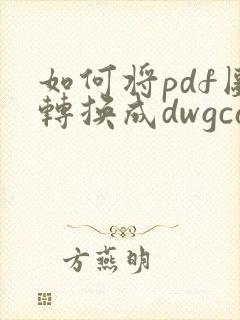 如何将pdf
轉换成dwgc
方燕明